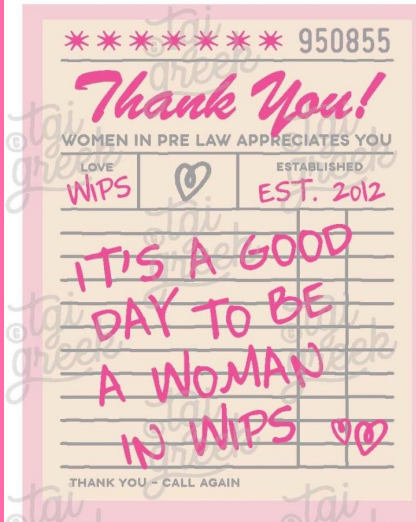 ******* 950855
Thank You!
WOMEN IN PRE LAW APPRECIATES YOU
LOVE
WIPS
ESTABLISHED
EST. 2012
IT'S A GOOD
DAY TO BE
A WOMAN
IN WIPS
THANK YOU - CALL AGAIN
©tgi greek